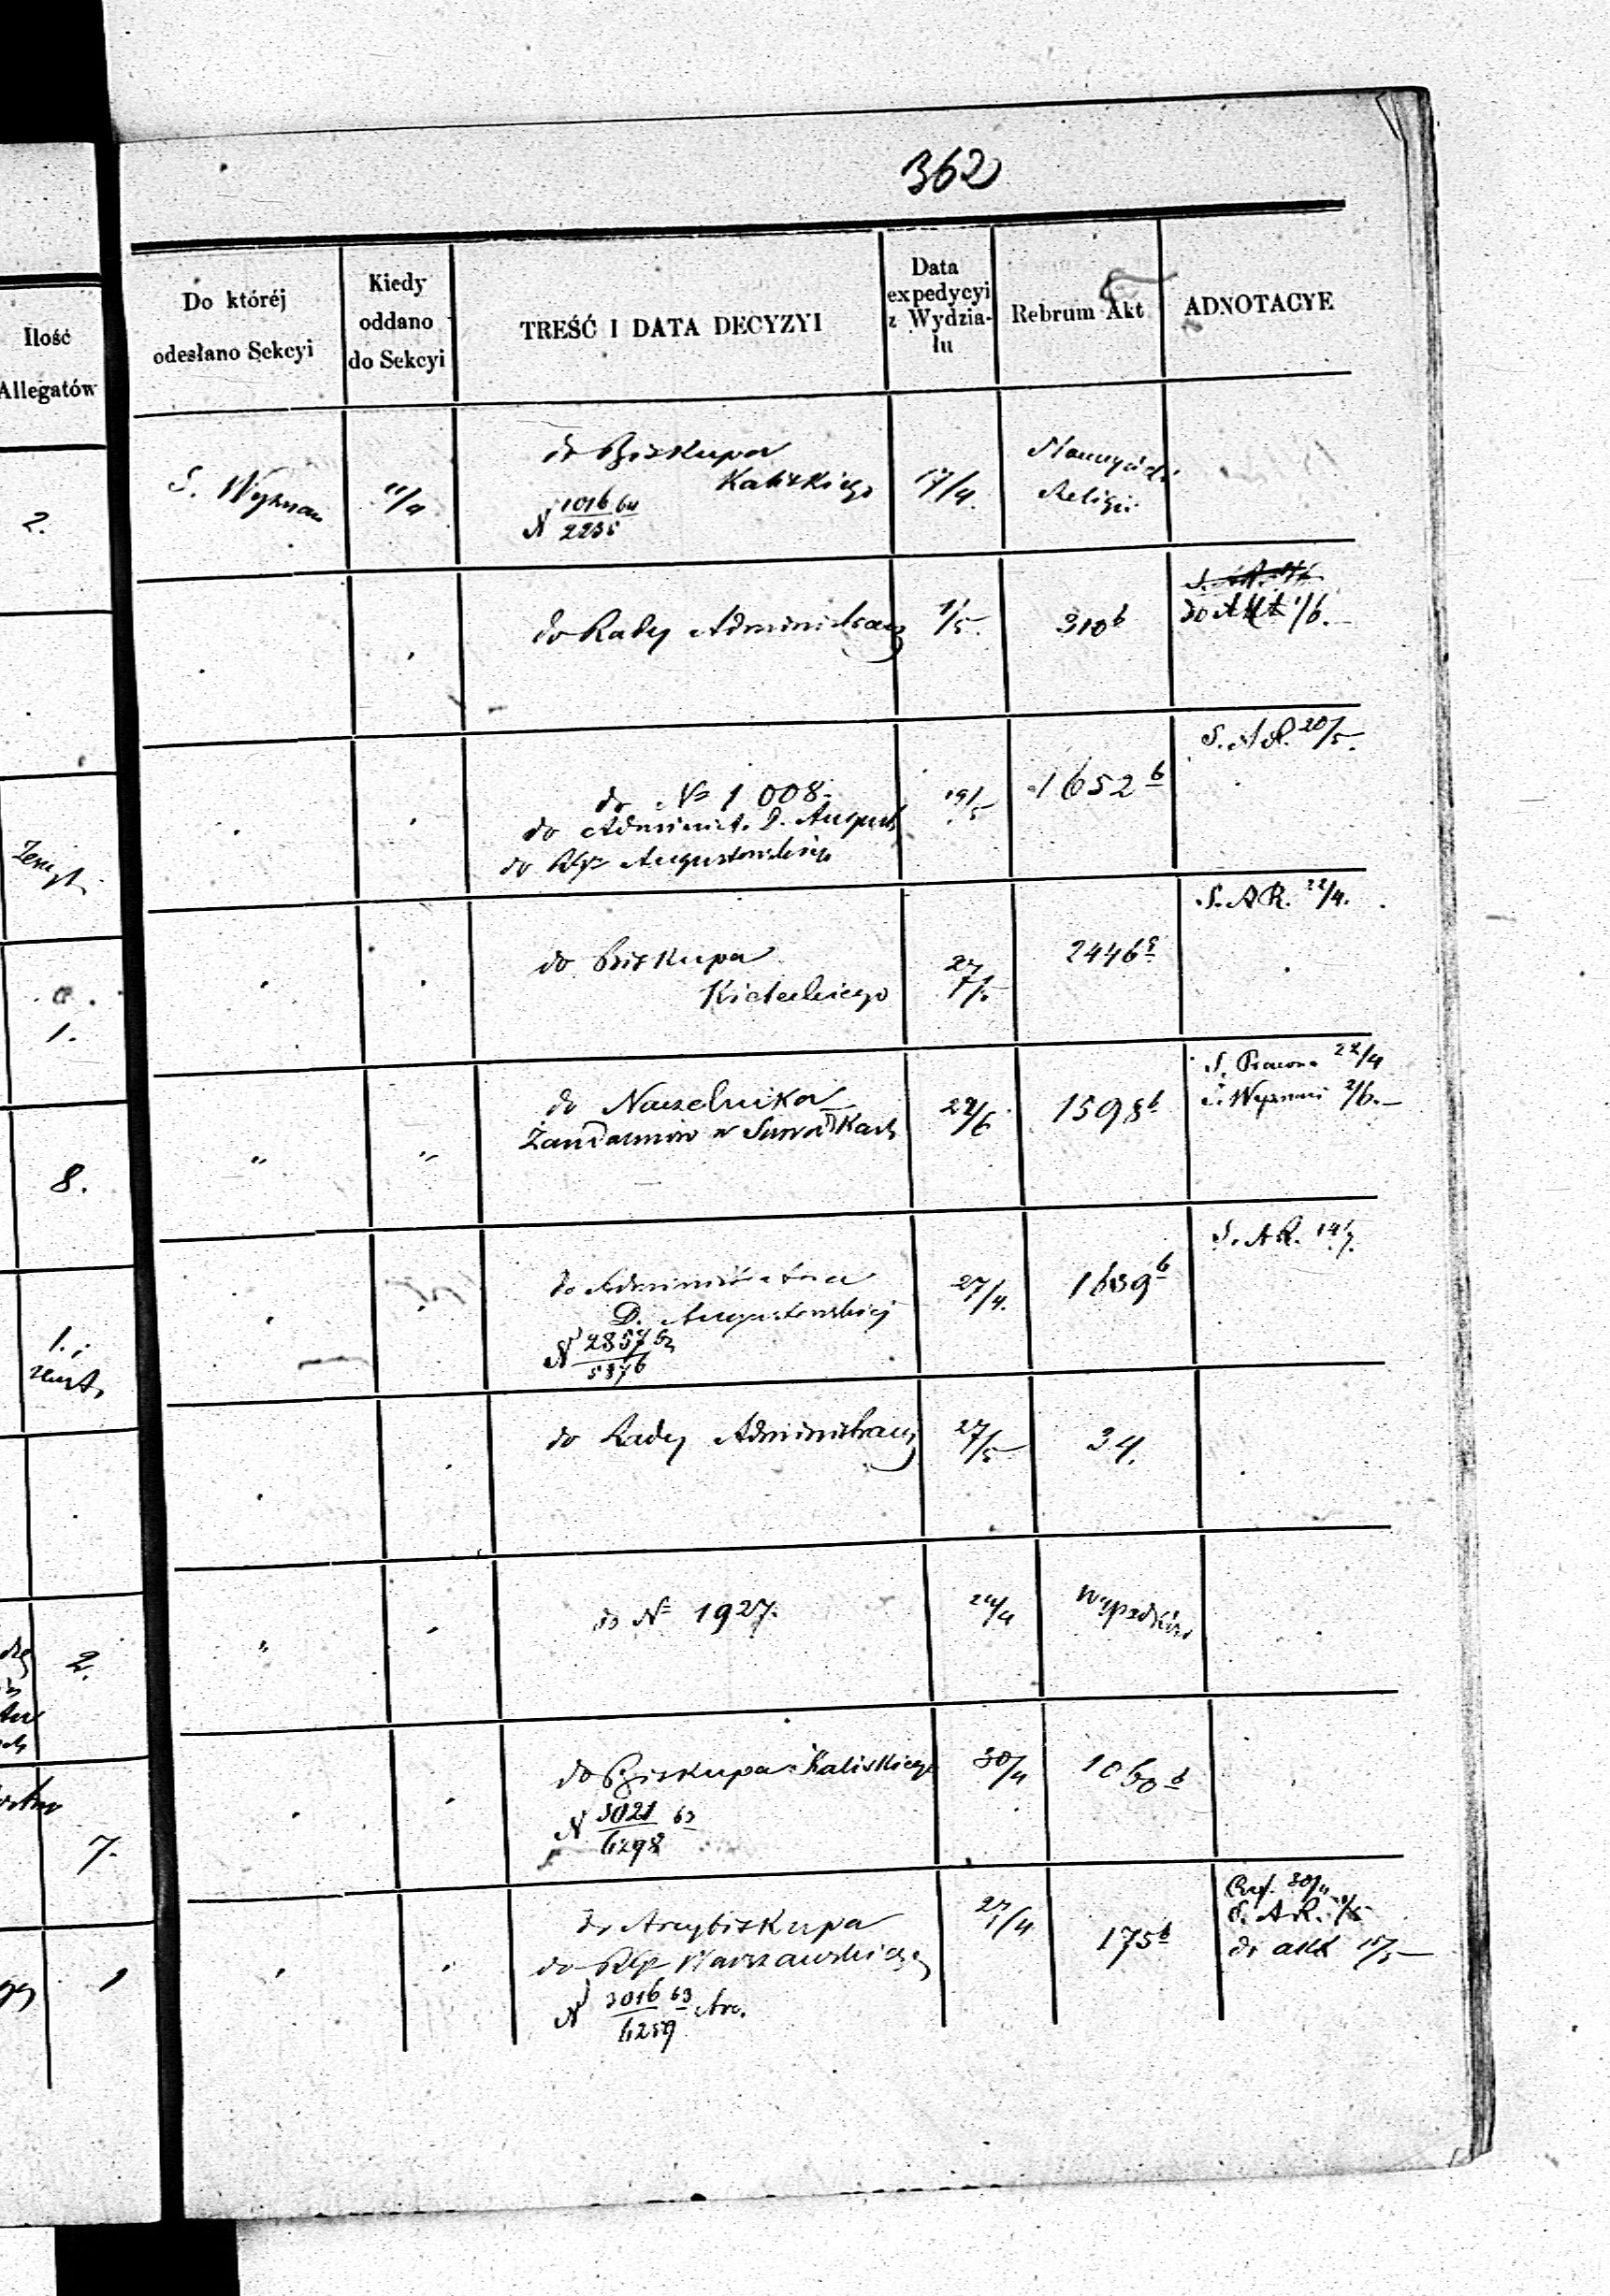 362
Ilość
Allegatów
Do któréj
odesłano Sekcyi
Kiedy
oddano
do Sekcyi
TREŚĆ I DATA DECYZYI
Data
expedycyi
z Wydzia-
łu
Rebrum Akt
ADNOTACYE
2.
S. Wyznań
11/4
do Biskupa
Kaliskiego
N 1016/2235 64
17/4.
Religii
do Rady Administracy
1/5.
310 b
do Akt 1/6.
do No 1008.
do Administ. D. August
do Augustowskiego
19/5
1652 b
S. A R. 20/5.
1.
do Biskupa
Kieleckiego
27/5
2446
S. A R. 22/4.
8.
do Naczelnika
Żandarmów w Suwałkach
1598 b
S. Prawna 22/4
Wyznań 2/6.
1.
do Administratora
D. Augustowskiej
N 2857/5376
27/4.
1639 b
S. A R.
do Rady Administracy
27/5
34.
2.
do No 1927.
24/4
Wypadków
7.
do Biskupa Kaliskiego
N 3021/6298 63
30/4
1060 b
1
do Arcybiskupa
do Warszawskiego
N 3016/6259 63
27/4
175 b
30/4
S. A R.
do akt 15/5